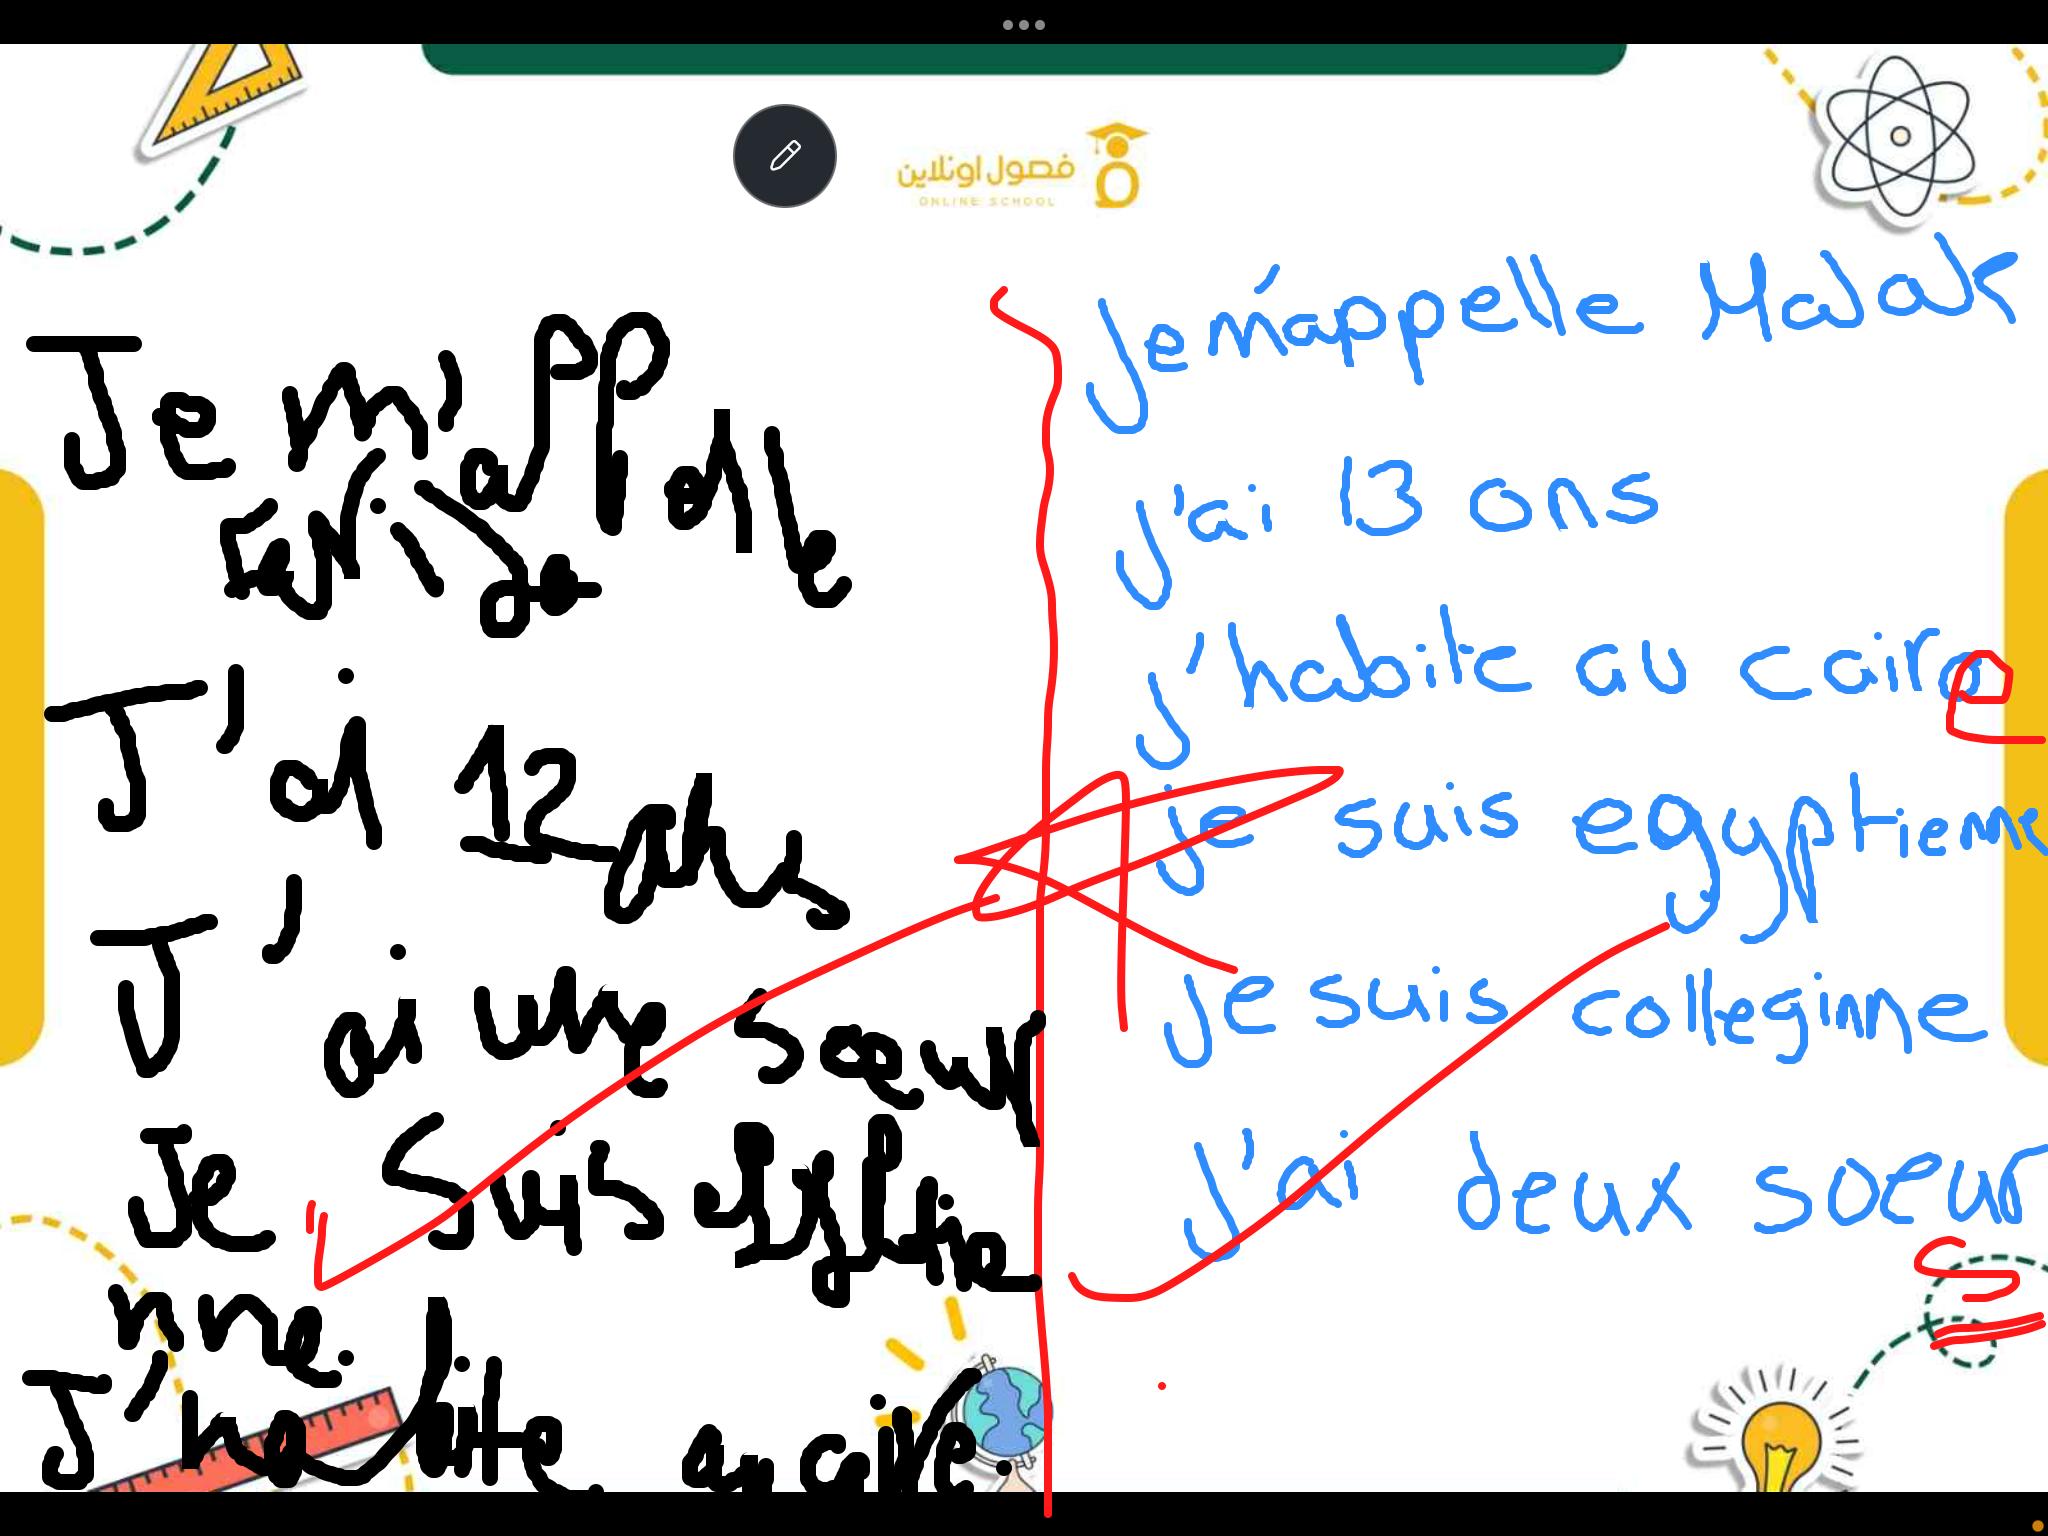 فصول اونلاين
ONLINE SCHOOL
Je m'appelle
J'ai 12 ans
J'ai une sœur
Je suis egyptie
nne.
J'habite au caire.
Je m'appelle Malak
J'ai 13 ans
J'habite au caire
je suis egyptienne
Je suis colleginne
J'ai deux soeur
s